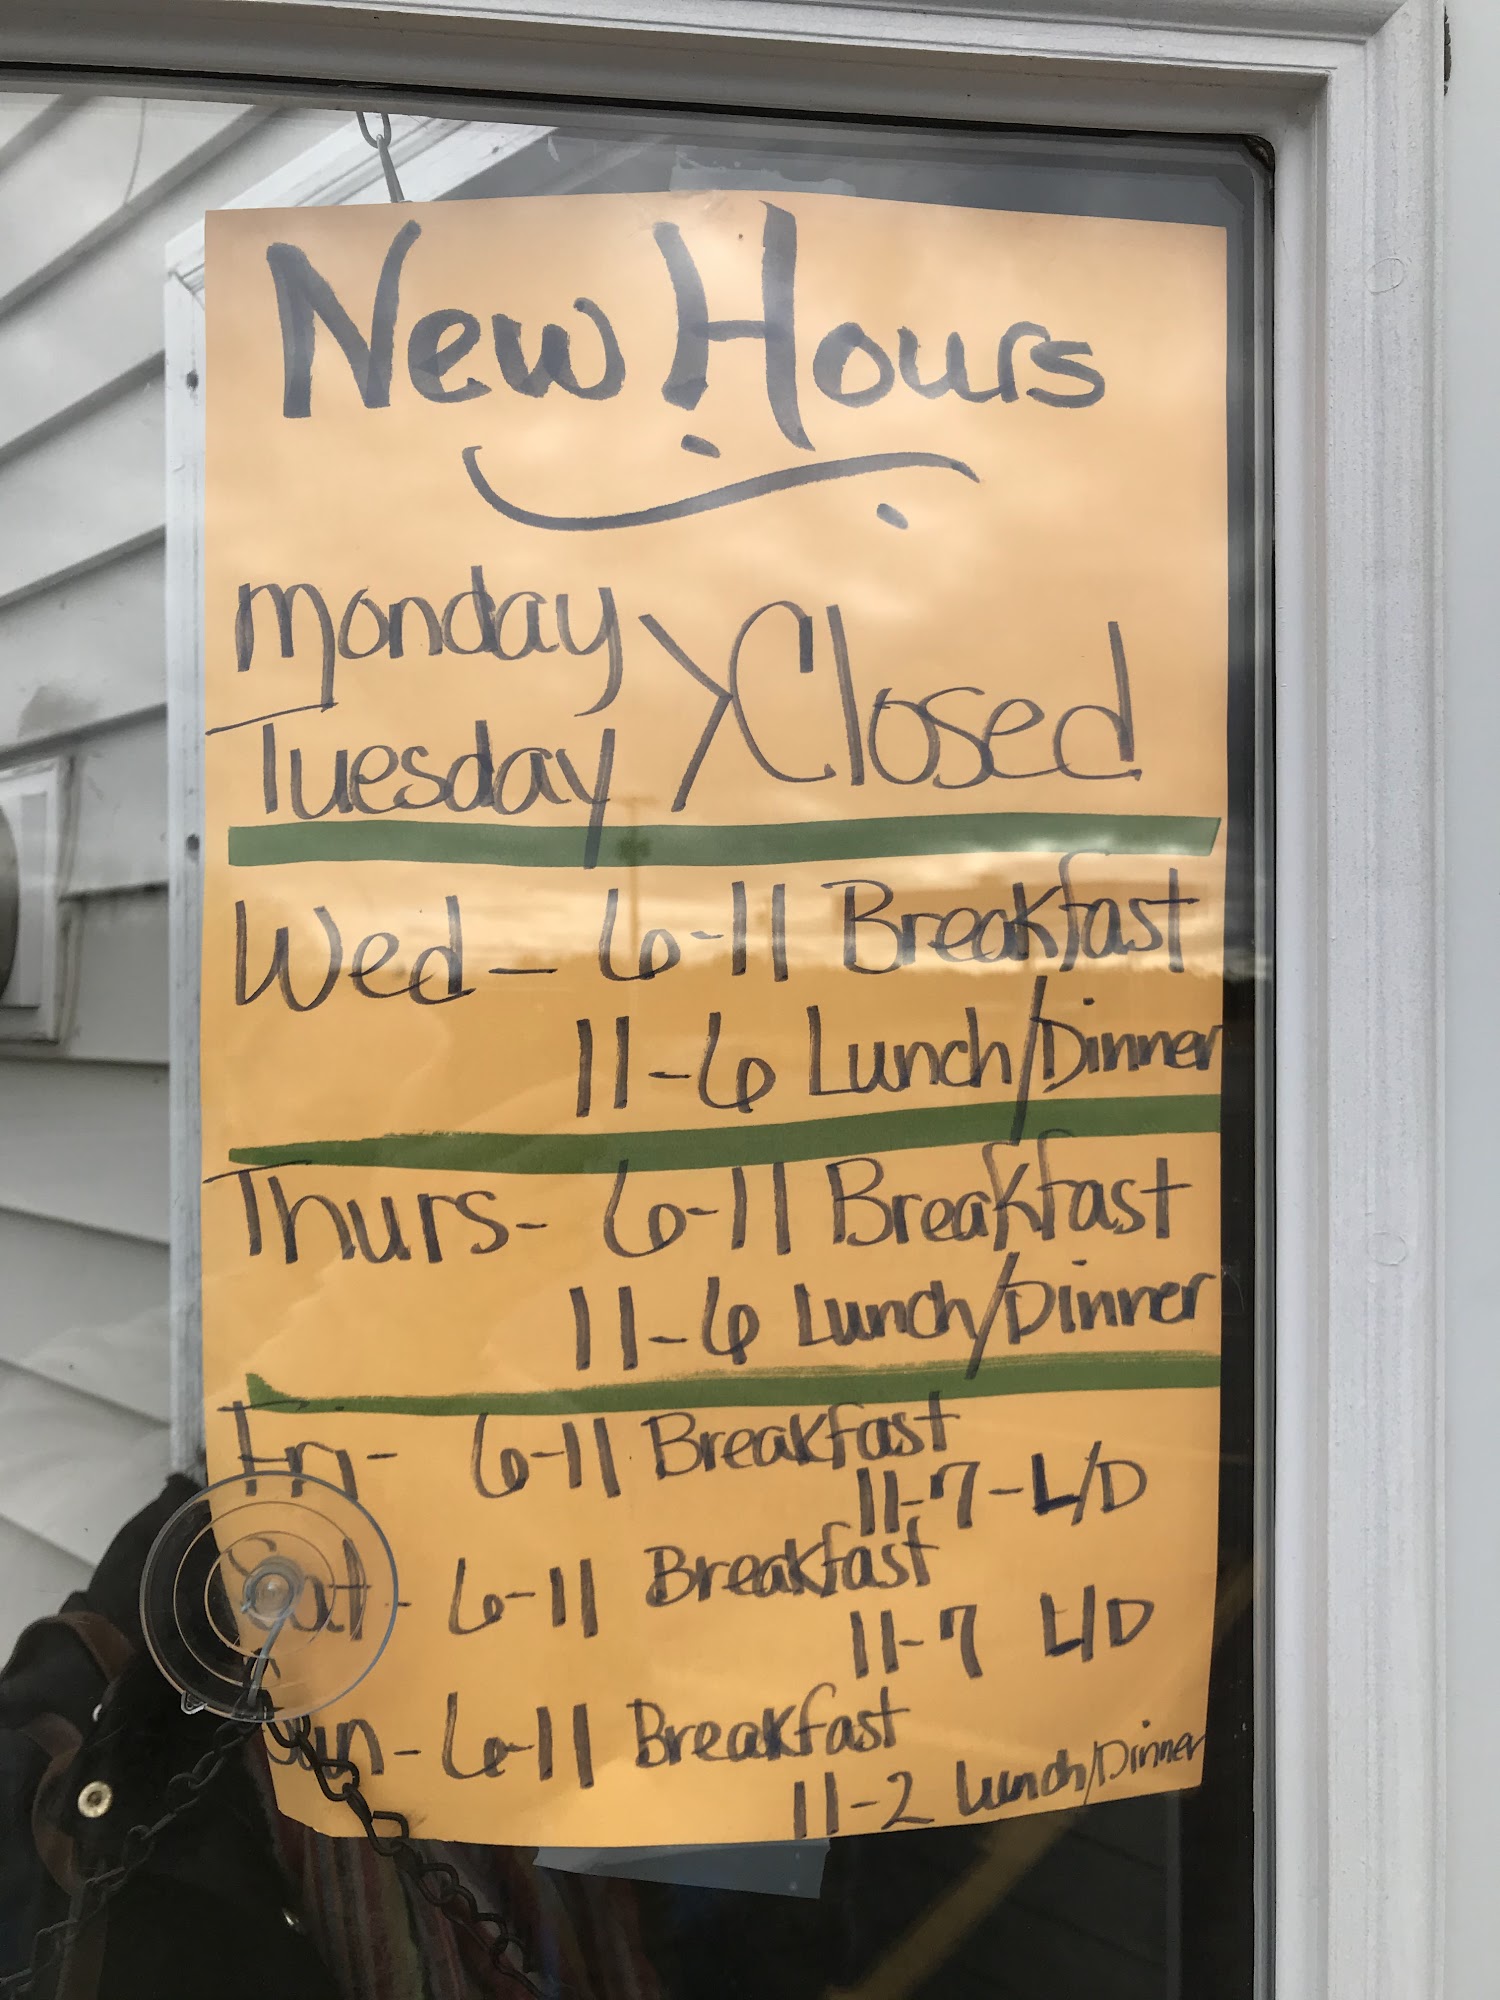 New Hours
Monday
Tuesday
Closed
Wed - 6-11 Breakfast
11-6 Lunch/Dinner
Thurs- 6-11 Breakfast
11-6 Lunch/Dinner
Fri- 6-11 Breakfast
11-7-L/D
Sat- 6-11 Breakfast
11-7 L/D
Sun- 6-11 Breakfast
11-2 Lunch/Dinner